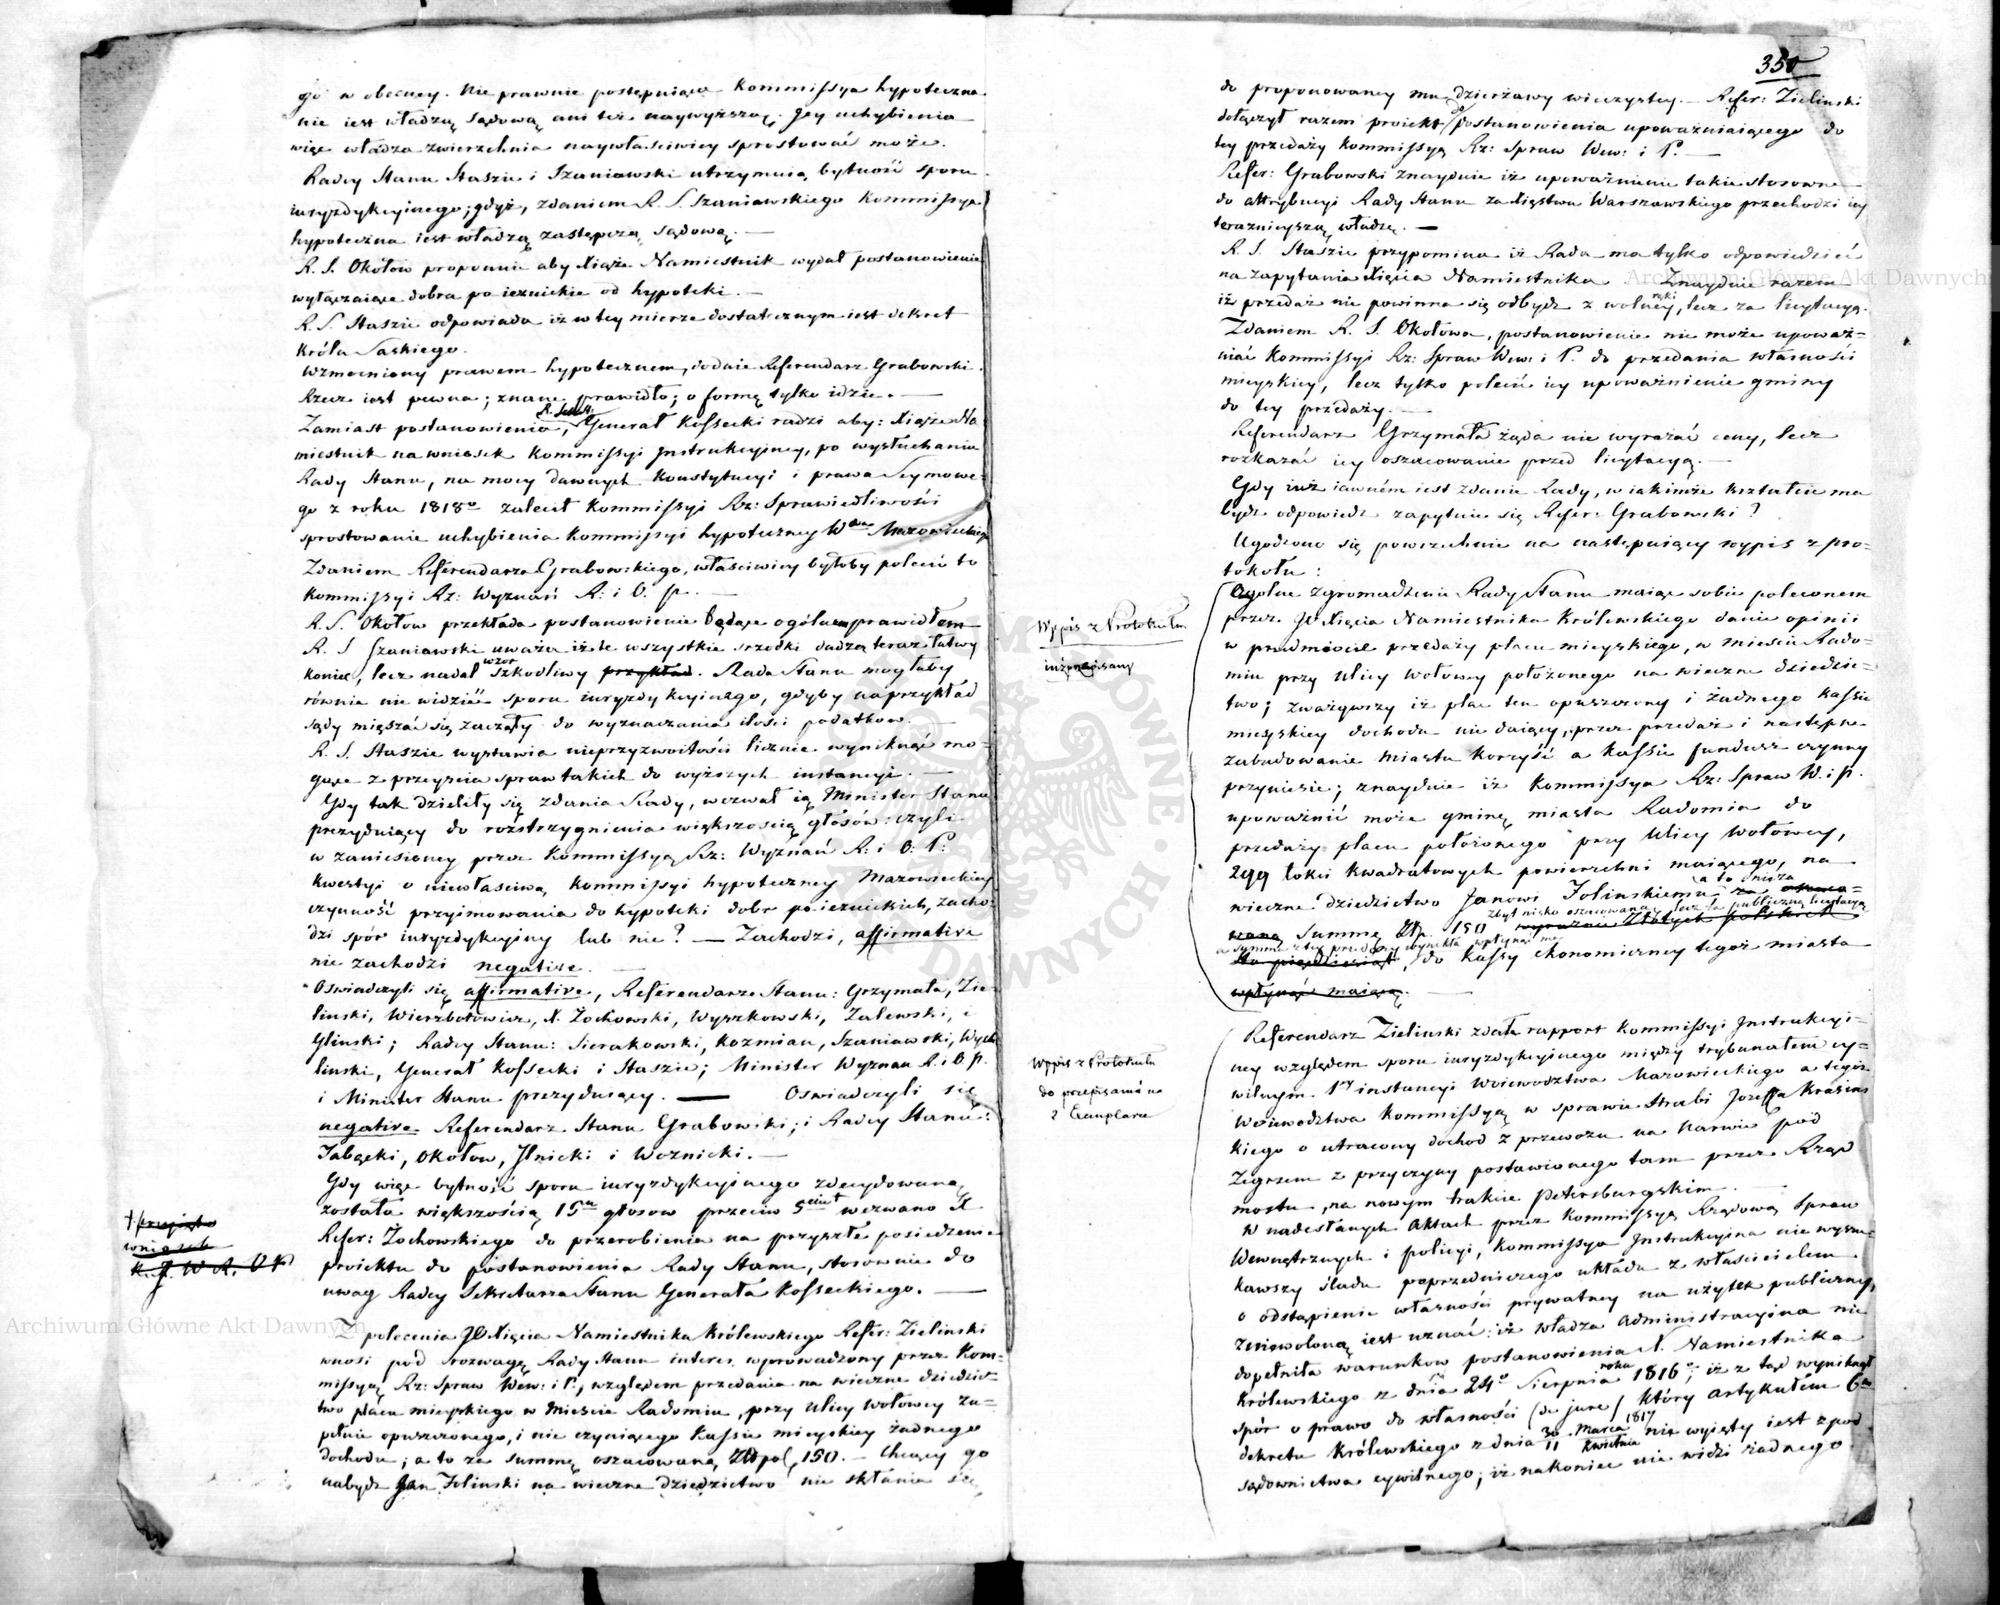 go w obecney. Nie prawnie postępuiąca Kommissya hypoteczna
nie iest władzą sądową ani też naywyższą. Jey uchybienia
więc władza zwierzchnia naywłaściwiey sprostować może.
Radcy Stanu Staszic i Szaniawski utrzymuią bytność sporu
iuryzdykcyinego; gdyż, zdaniem R. S. Szaniawskiego Kommissya
hypoteczna iest władzą zastępczą sądową. —
R. S. Okołow proponuie aby Xiąże Namiestnik wydał postanowienie
wyłączaiące dobra po iezuickie od hypoteki. —
R. S. Staszic odpowiada iż w tey mierze dostatecznym iest dekret
Króla Saskiego.
Wzmocniony prawem hypotecznem, dodaie Referendarz Grabowski.
Rzecz iest pewna; znane prawidło; o formę tylko idzie. —
R. Sekr:
Zamiast postanowienia, Generał Kossecki radzi aby: Xiąże Na=
miestnik na wniosek Kommissyi Instrukcyiney, po wysłuchaniu
Rady Stanu, na mocy dawnych Konstytucyi i prawa Seymowe=
go z roku 1818º zalecił Kommissyi Rz: Sprawiedliwości
sprostowanie uchybienia Kommissyi hypoteczney Wdztwa Mazowieckiego
Zdaniem Referendarza Grabowskiego, właściwiey byłoby polecić to
Kommissyi Rz: Wyznań R: i O. p. —
R. S. Okołow przekłada postanowienie będące ogólnem prawidłem
R. S Szaniawski uważa iż te wszystkie srzodki dadzą teraz łatwy
koniec, lecz nadal szkodliwy wzor przykład. Rada Stanu mogłaby
równie nie widzieć sporu iuryzdykcyinego, gdyby naprzykład
sądy mięszać się zaczęły do wyznaczania ilości podatkow. —
R. S. Staszic wystawia nieprzyzwoitości licznie wyniknąć mo=
gące z przeyścia spraw takich do wyższych instancyi. —
Gdy tak dzieliły się zdania Rady, wezwał ią Minister Stanu
prezyduiący do rozstrzygnienia większością głosów: czyli
w zaniesioney przez Kommissyą Rz: Wyznań R: i O: P:
kwestyi o niewłaściwą Kommissyi hypoteczney Mazowieckiey
czynność przyimowania do hypoteki dobr po iezuickich, zacho=
dzi spór iuryzdykcyiny lub nie? — Zachodzi, affirmative
nie zachodzi negative. —
Oswiadczyli się affirmative, Referendarze Stanu: Grzymała, Zie=
linski, Wierzbołowicz, X. Żochowski, Wyszkowski, Zalewski, i
Gliński; Radcy Stanu: Sierakowski, Kozmian, Szaniawski, Wych
linski, Generał Kossecki i Staszic; Minister Wyznań R. i O P.
i Minister Stanu prezyduiący. — Oswiadczyli się
negative Referendarz Stanu Grabowski; i Radcy Stanu:
Tabęcki, Okołow, Ilnicki i Woznicki. —
Gdy więc bytność sporu iuryzdykcyinego zdecydowaną
została większością 15tu głosow przeciw 5ciu wezwano X
Refer: Żochowskiego do przerobienia na przyszłe posiedzenie
proiektu do postanowienia Rady Stanu, stosownie do
uwag Radcy Sekretarza Stanu Generała Kosseckiego. —
† przyięto
wniosek
K. J. W R. O P
Z polecenia JO Xięcia Namiestnika Królewskiego Refer: Zielinski
wnosi pod rozwagę Rady Stanu interes wprowadzony przez Kom=
missyą Rz: Spraw Wew: i P., względem przedania na wieczne dziedzic=
two placu mieyskiego w mieście Radomiu, przy ulicy Wołowey zu=
pełnie opuszczonego, i nie czyniącego Kassie mieyskiey żadnego
dochodu; a to za summę oszacowaną Złpol, 150. — Chcący go
nabydź Jan Jolinski na wieczne dziedzictwo nie skłania się
350
do proponowaney mu dzierżawy wieczystey. — Refer: Zielinski
dołączył razem proiekt do postanowienia upoważniaiącego do
tey przedaży Kommissyą Rz: Spraw Wew: i P. —
Refer: Grabowski znayduie iż upoważnienie takie stosowne
do attrybucyi Rady Stanu za Xięstwa Warszawskiego przechodzi iey
teraznieyszą władzę. —
R. S. Staszic przypomina iż Rada ma tylko odpowiedzieć
na zapytania Xięcia Namiestnika. Znayduie razem
iż przedaż nie powinna się odbydź z wolney ręki, lecz za licytacyą.
Zdaniem R. S. Okołowa, postanowienie nie może upoważ=
niać Kommissyi Rz: Spraw Wew: i P. do przedania własności
mieyskiey, lecz tylko polecić iey upoważnienie gminy
do tey przedaży. —
Referendarz Grzymała żąda nie wyrażać ceny, lecz
rozkazać iey oszacowanie przed licytacyą. —
Gdy iuż iawném iest zdanie Rady, w iakimże kształcie ma
bydź odpowiedź zapytuie się Refer: Grabowski?
Ugodzono się powszechnie na następuiący wypis z pro=
tokołu:
Wypis z Protokułu
iuż napisany
Ogólne zgromadzenie Rady Stanu maiąc sobie poleconem
przez JO Xięcia Namiestnika Królewskiego danie opinii
w przedmiocie przedaży placu mieyskiego, w mieście Rado=
miu przy ulicy Wołowey położonego na wieczne dziedzic=
two; zważywszy iż plac ten opuszczony i żadnego Kassie
mieyskiey dochodu nie daiący, przez przedaż i następne
zabudowanie miastu korzyść a Kassie fundusz czynny
przyniesie; znayduie iż Kommissya Rz: Spraw W. i P.
upoważnić może gminę miasta Radomia do
przedaży placu położonego przy Ulicy Wołowey,
299 łokci kwadratowych powierzchni maiącego, na
wieczne dziedzictwo Janowi Jolinskiemu za oszaco=
a to nie za
zbyt nisko oszacowaną, lecz za publiczną licytacyą
waną Summę Złp. 150 wyraźnie Złotych polskich
a summa z tey przedaży wynikła wpłynąć ma
sto pięćdziesiąt, do Kassy ekonomiczney tegoż miasta
wpłynąć maiącą. —
Wypis z Protokułu
do przepisania na
2 Exemplarze
Referendarz Zielinski zdał rapport Kommissyi Instrukcyi=
ney względem sporu iuryzdykcyinego między trybunałem cy=
wilnym 1ey instancyi Woiewodztwa Mazowieckiego a tegoż
Woiewodztwa Kommissyą w sprawie Hrabi Jozeffa Krasins
kiego o utracony dochod z przewozu na Narwie pod
Zegrzem z przyczyny postawionego tam przez Rząd
mostu, na nowym trakcie Petersburgskim. —
W nadesłanych Aktach przez Kommissyą Rządową Spraw
Wewnętrznych i policyi, Kommissya Instrukcyina nie wyszu=
kawszy śladu poprzedniczego układu z właścicielem
o odstąpienie własności prywatney na użytek publiczny,
zniewoloną iest uznać: iż władza Administracyina nie
dopełniła warunkow postanowienia X. Namiestnika
Królewskiego z dnia 24º Sierpnia roku 1816º; iż z tąd wyniknął
spór o prawo do własności (de jure) który artykułem 6m
dekretu Królewskiego z dnia 30/11 Marca/Kwietnia 1817 nie wyięty iest z pod
sądownictwa cywilnego; iż nakoniec nie widzi żadnego
Archiwum Główne Akt Dawnych
Archiwum Główne Akt Dawnych
ARCHIWUM GŁÓWNE AKT DAWNYCH